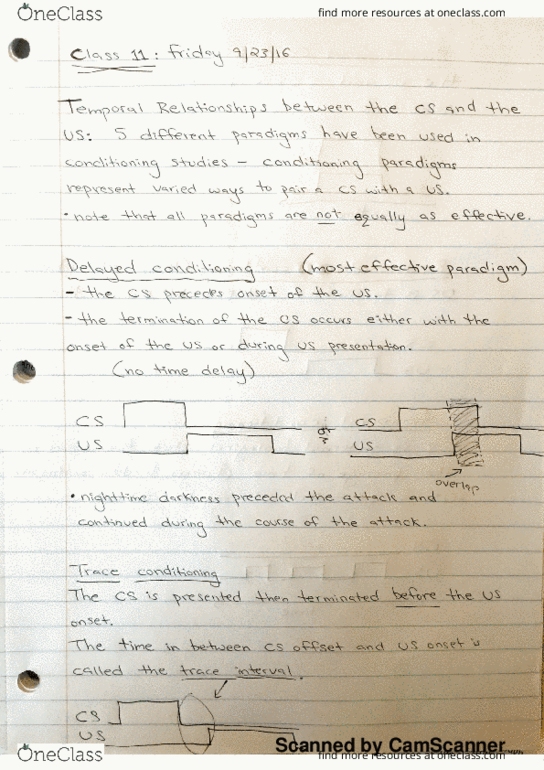 OneClass
find more resources at oneclass.com
Class 11: Friday 9/23/16
Temporal Relationships between the CS and the
US: 5 different paradigms have been used in
conditioning studies - conditioning paradigms
represent varied ways to pair a CS with a US.
• note that all paradigms are not equally as effective.
Delayed conditioning (most effective paradigm)
- the CS precedes onset of the US.
- the termination of the CS occurs either with the
onset of the US or during US presentation.
(no time delay)
CS or CS
US US
overlap
• nighttime darkness preceded the attack and
continued during the course of the attack.
Trace conditioning
The CS is presented then terminated before the US
onset.
The time in between CS offset and US onset is
called the trace interval.
CS
US
Scanned by CamScanner
OneClass
find more resources at oneclass.com